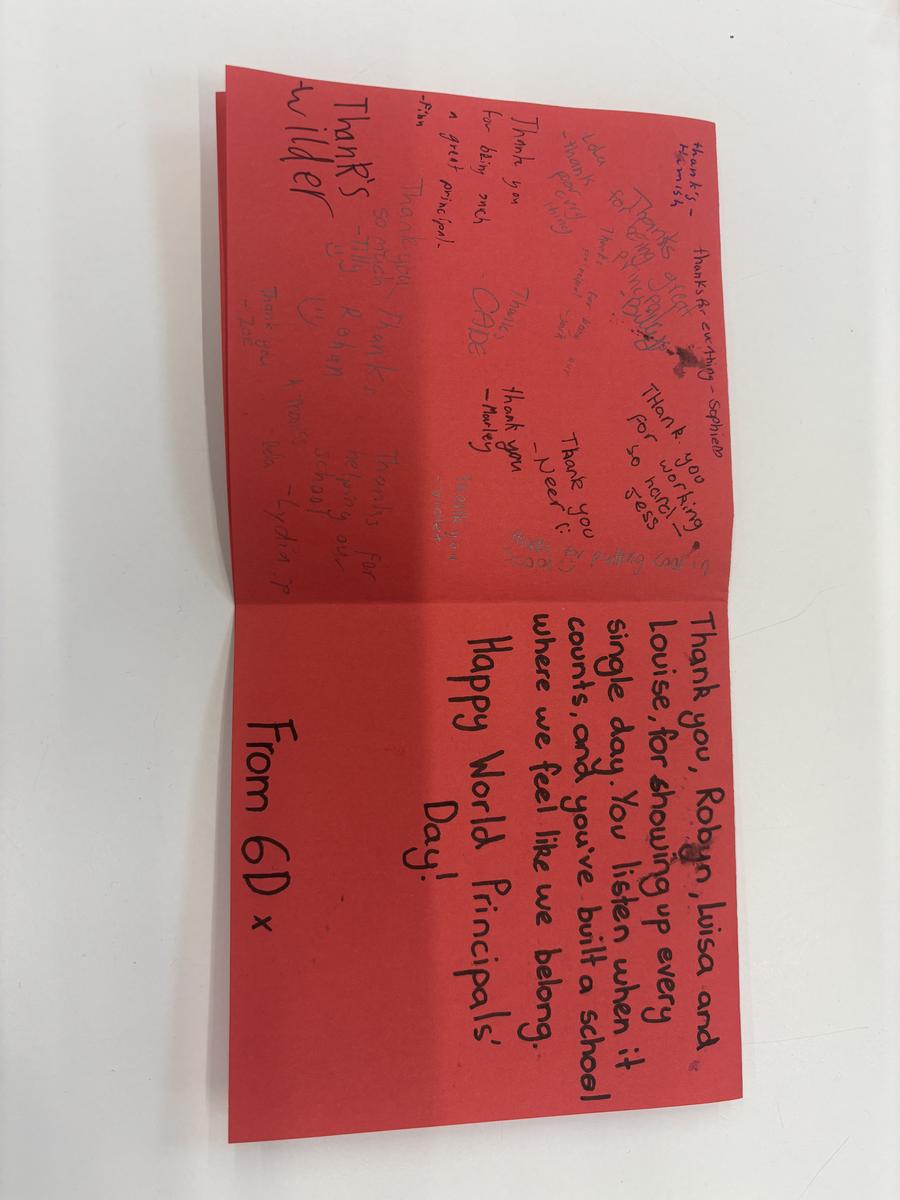 thank's -
Hamish
thanks for everthing - Sophie
Thanks
for being great
principally!!
THank you
for working
so hard -
Jess
Lola
- thank
for putting cool in
Thanks for being our
Thank you
- Neer
Thank you
for being such
a great principal -
- Finn
Thanks
CADE
thank you
- Marley
thank you
- violet
Thank you
so much
- Tilly
Thanks
Rohan
Thanks for
helping our
school
- Lydia :P
Thank's
- wilder
Thank you
- Zoë
Thank you, Robyn, Luisa and
Louise, for showing up every
single day. You listen when it
counts, and you've built a school
where we feel like we belong.
Happy World Principals'
Day!
From 6D x